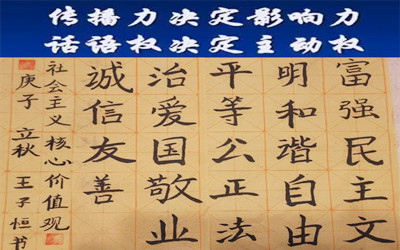 传播力决定影响力
话语权决定主动权
富强民主文
明和谐自由
平等公正法
治爱国敬业
诚信友善
社会主义核心价值观
庚子 立秋 王子恒书